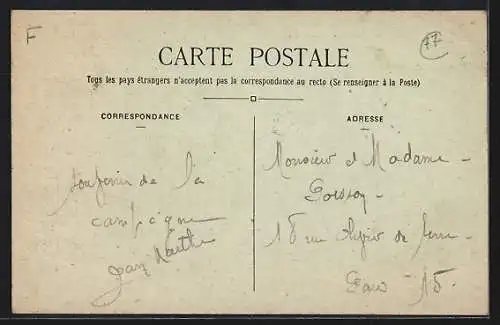 F
77
CARTE POSTALE
Tous les pays étrangers n'acceptent pas la correspondance au recto (Se renseigner à la Poste)
CORRESPONDANCE
souvenir de la
campagne
Jean
ADRESSE
Monsieur et Madame
18 rue de
Paris 15.